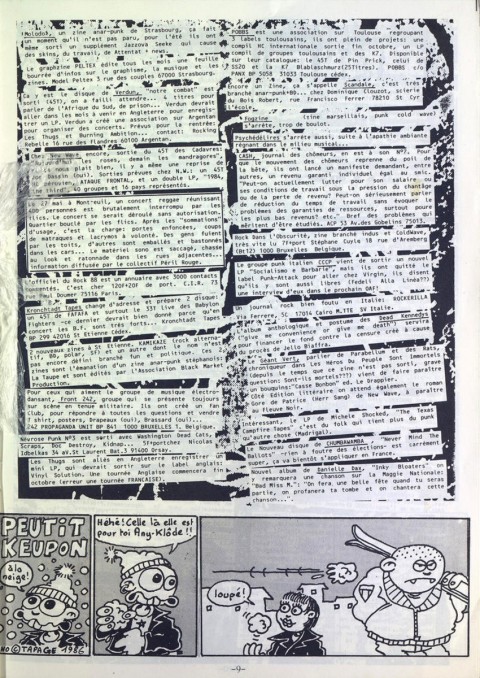 Molodoï, un zine anar-punk de Strasbourg, ça fait
un moment qu'il n'est pas paru, pour l'été ils ont
même sorti un supplément Jazzova Seeke qui cause
des skins, du travail, de Attentat + news.
Le graphzine PELTEX édite tous les mois une feuille
bourrée d'infos sur le graphzine, la musique et les
zines. Model Peltex 3 rue des couples 67000 Strasbourg.
Ça y est le disque de Verdun, "notre combat" est
sorti (45T), on a failli attendre... 4 titres pour
parler de l'Afrique du Sud, de prison. Verdun devrait
aller dans les mois à venir en Angleterre pour enregistrer
un LP. Verdun a créé une association sur Argenteuil
pour organiser des concerts. Prévus pour la rentrée:
Les Thugs et Burning Ambition... contact: Rocking
Rebelle 16 rue des flandres 60100 Argenteuil
Chez New Wave encore, sortie du 45T des Cadavres
"Au bal des roses, demain les mandragores",
non plaît bien, il y a même une reprise de
bassin (oui). Sorties prévues chez N.W.: un 45T
, ATAQUE FRONTAL, et un double LP, "1984,
the third", 40 groupes et 16 pays représentés.
27 mai à Montreuil, un concert reggae réunissant
400 personnes est brutalement interrompu par les
flics. Le concert se serait déroulé sans autorisation.
Quartier bouclé par les flics. Après les "sommations"
d'usage, c'est la charge: portes enfoncées, coups
de matraques et lacrymos à volonté. Des gens fuient
par les toits, d'autres sont emballés et bastonnés
dans les cars... Le matériel sono est saccagé, chasse
au look et ratonnade dans les rues adjacentes.
information diffusée par le collectif Péril Rouge.
L'officiel du Rock 88 est un annuaire avec 3000 contacts
commentés. C'est cher 120F+20F de port. C.I.R. 73
rue Paul Doumer 75116 Paris.
Kronchtadt Tapes change d'adresse et prépare 2 disques
un 45T de TAFATA et surtout le 33T live des Babylon
Fighters ce dernier devrait en donné parce qu'en
concert les B.F. sont très forts... Kronchtadt Tapes
BP 299 42016 St Etienne Cédex.
2 nouveaux zines à St Etienne, KAMIKAZE (rock alterna-
tif, BD, polar, SF) et un autre dont le nom n'est
pas encore défini branché fun et politique. Ces 2
zines sont l'émanation d'un zine anar-punk stéphanois:
La Taupe et sont édités par l'Association Black Market
Production.
Pour ceux qui aiment le groupe de musique électro-
dansant, Front 242, groupe qui se présente toujours
sur scène en tenue militaire. Ils ont créé un Fan
Club, pour répondre à toutes les questions et ventes
T shirt, posters, Drapeaux (oui), Brassard (oui)...
242 PROPAGANDA UNIT BP 841 1000 BRUXELLES 1. Belgique.
Névrose Punk N°3 est sorti avec Washington Dead Cats,
Scraps, Doc Destroy, Kidnap... 5F+portchez Nicolas
Idbelkas 34 av.St Laurent Bat.3 91400 Orsay.
Les Thugs sont allés en Angleterre enregistrer un
mini LP, qui devrait sortir sur le label anglais:
Vinyl Solution. Une tournée Anglaise commencera fin
octobre (erreur une tournée FRANCAISE).
POBBI est une association sur Toulouse regroupant
3 labels toulousains, ils ont plein de projets: une
compil HC internationale sortie fin octobre, un LP
compil de groupes toulousains et des K7. Disponible
sur leur catalogue: le 45T de Pin Prick, celui de
SS20 et la K7 Blablacheurz(25Titres). POBBI c/o
PANX BP 5058 31033 Toulouse cédex.
Encore un Zine, ça s'appelle Scandale, c'est très
branché anar-punk+BD.. chez Dominique Clouzot, scierie
du Bois Robert, rue Francisco ferrer 78210 St Cyr
l'école.
Fogzine (zine marseillais, punk cold wave)
s'arrête, trop de boulot.
Psychédélires s'arrête aussi, suite à l'apathie ambiante
régnant dans le milieu musical...
CASH, journal des chômeurs, en est à son N°7. Pour
que le mouvement des chômeurs reprenne du poil de
la bête, ils ont lancé un manifeste demandant, entre
autres, un revenu garanti individuel égal au smic.
"Peut-on actuellement lutter pour son salaire, ou
ses conditions de travail sous la pression du chantage
ou de la perte de revenu? Peut-on sérieusement parler
de réduction du temps de travail sans évoquer le
problème des garanties de ressources, surtout poure
les plus bas revenus? etc." Bref des problèmes qui
méritent d'être étudiés. ACP 53 Av.des Gobelins 75013.
Noctes dans l'Obscurité, zine branché indus et ColdWave,
très vite lu 7f+port Stéphane Cuyle 18 rue d'Arenberg
Bte 121 1000 Bruxelles Belgique.
Le groupe punk italien CCCP vient de sortir un nouvel
LP "Socialismo e Barbarie", mais ils ont quitté le
label Punk-Attack pour aller chez Virgin, ils disent
qu'ils y sont aussi libres (Fedeli Alla Linéa??)
une interview d'eux dans le prochain OAF!
Un journal rock bien foutu en Italie: ROCKERILLA
Via Ferrere, 5C 17014 Cairo M.TTE SV Italie.
LP (anthologique et posthume des Dead Kennedys
("give me convenience or give me death") servira
pour financer le fond contre la censure créé à cause
du procès de Jello Biafra.
Géant Vert, parolier de Parabellum et des Rats,
chroniqueur dans Les Héros Du Peuple Sont Immortels
(depuis le temps que ce zine n'est pas sorti, grave
question: Sont-ils mortels???) vient de faire paraître
un bouquins:"Casse Bonbon" ed. Le Dragpier.
Côté Edition littéraire on attend également le roman
Gore de Patrice (Herr Sang) de New Wave, à paraître
au Fleuve Noir.
Intéressant, le LP de Michelle Shocked, "The Texas
Campfire Tapes" c'est du folk qui tient plus du punk
qu'autre chose (Madrigal).
Le Nouveau disque de CHUMBAWAMBA, "Never Mind The
Ballots" -rien à foutre des élections- est carrément
super, ça va bientôt s'appliquer en France.
Nouvel album de Danielle Dax, "Inky Bloaters" on
y remarquera une chanson sur la Maggie Nationale:
"Bad Miss M.": "On fera une belle fête quand tu seras
partie, on profanera ta tombe et on chantera cette
chanson.
PEUTIT
KEUPON
à la
neige!
NO © TAPAGE 1986
Héhé! Celle là elle est
pour toi Any-Klôde!!
loupé!
-9-